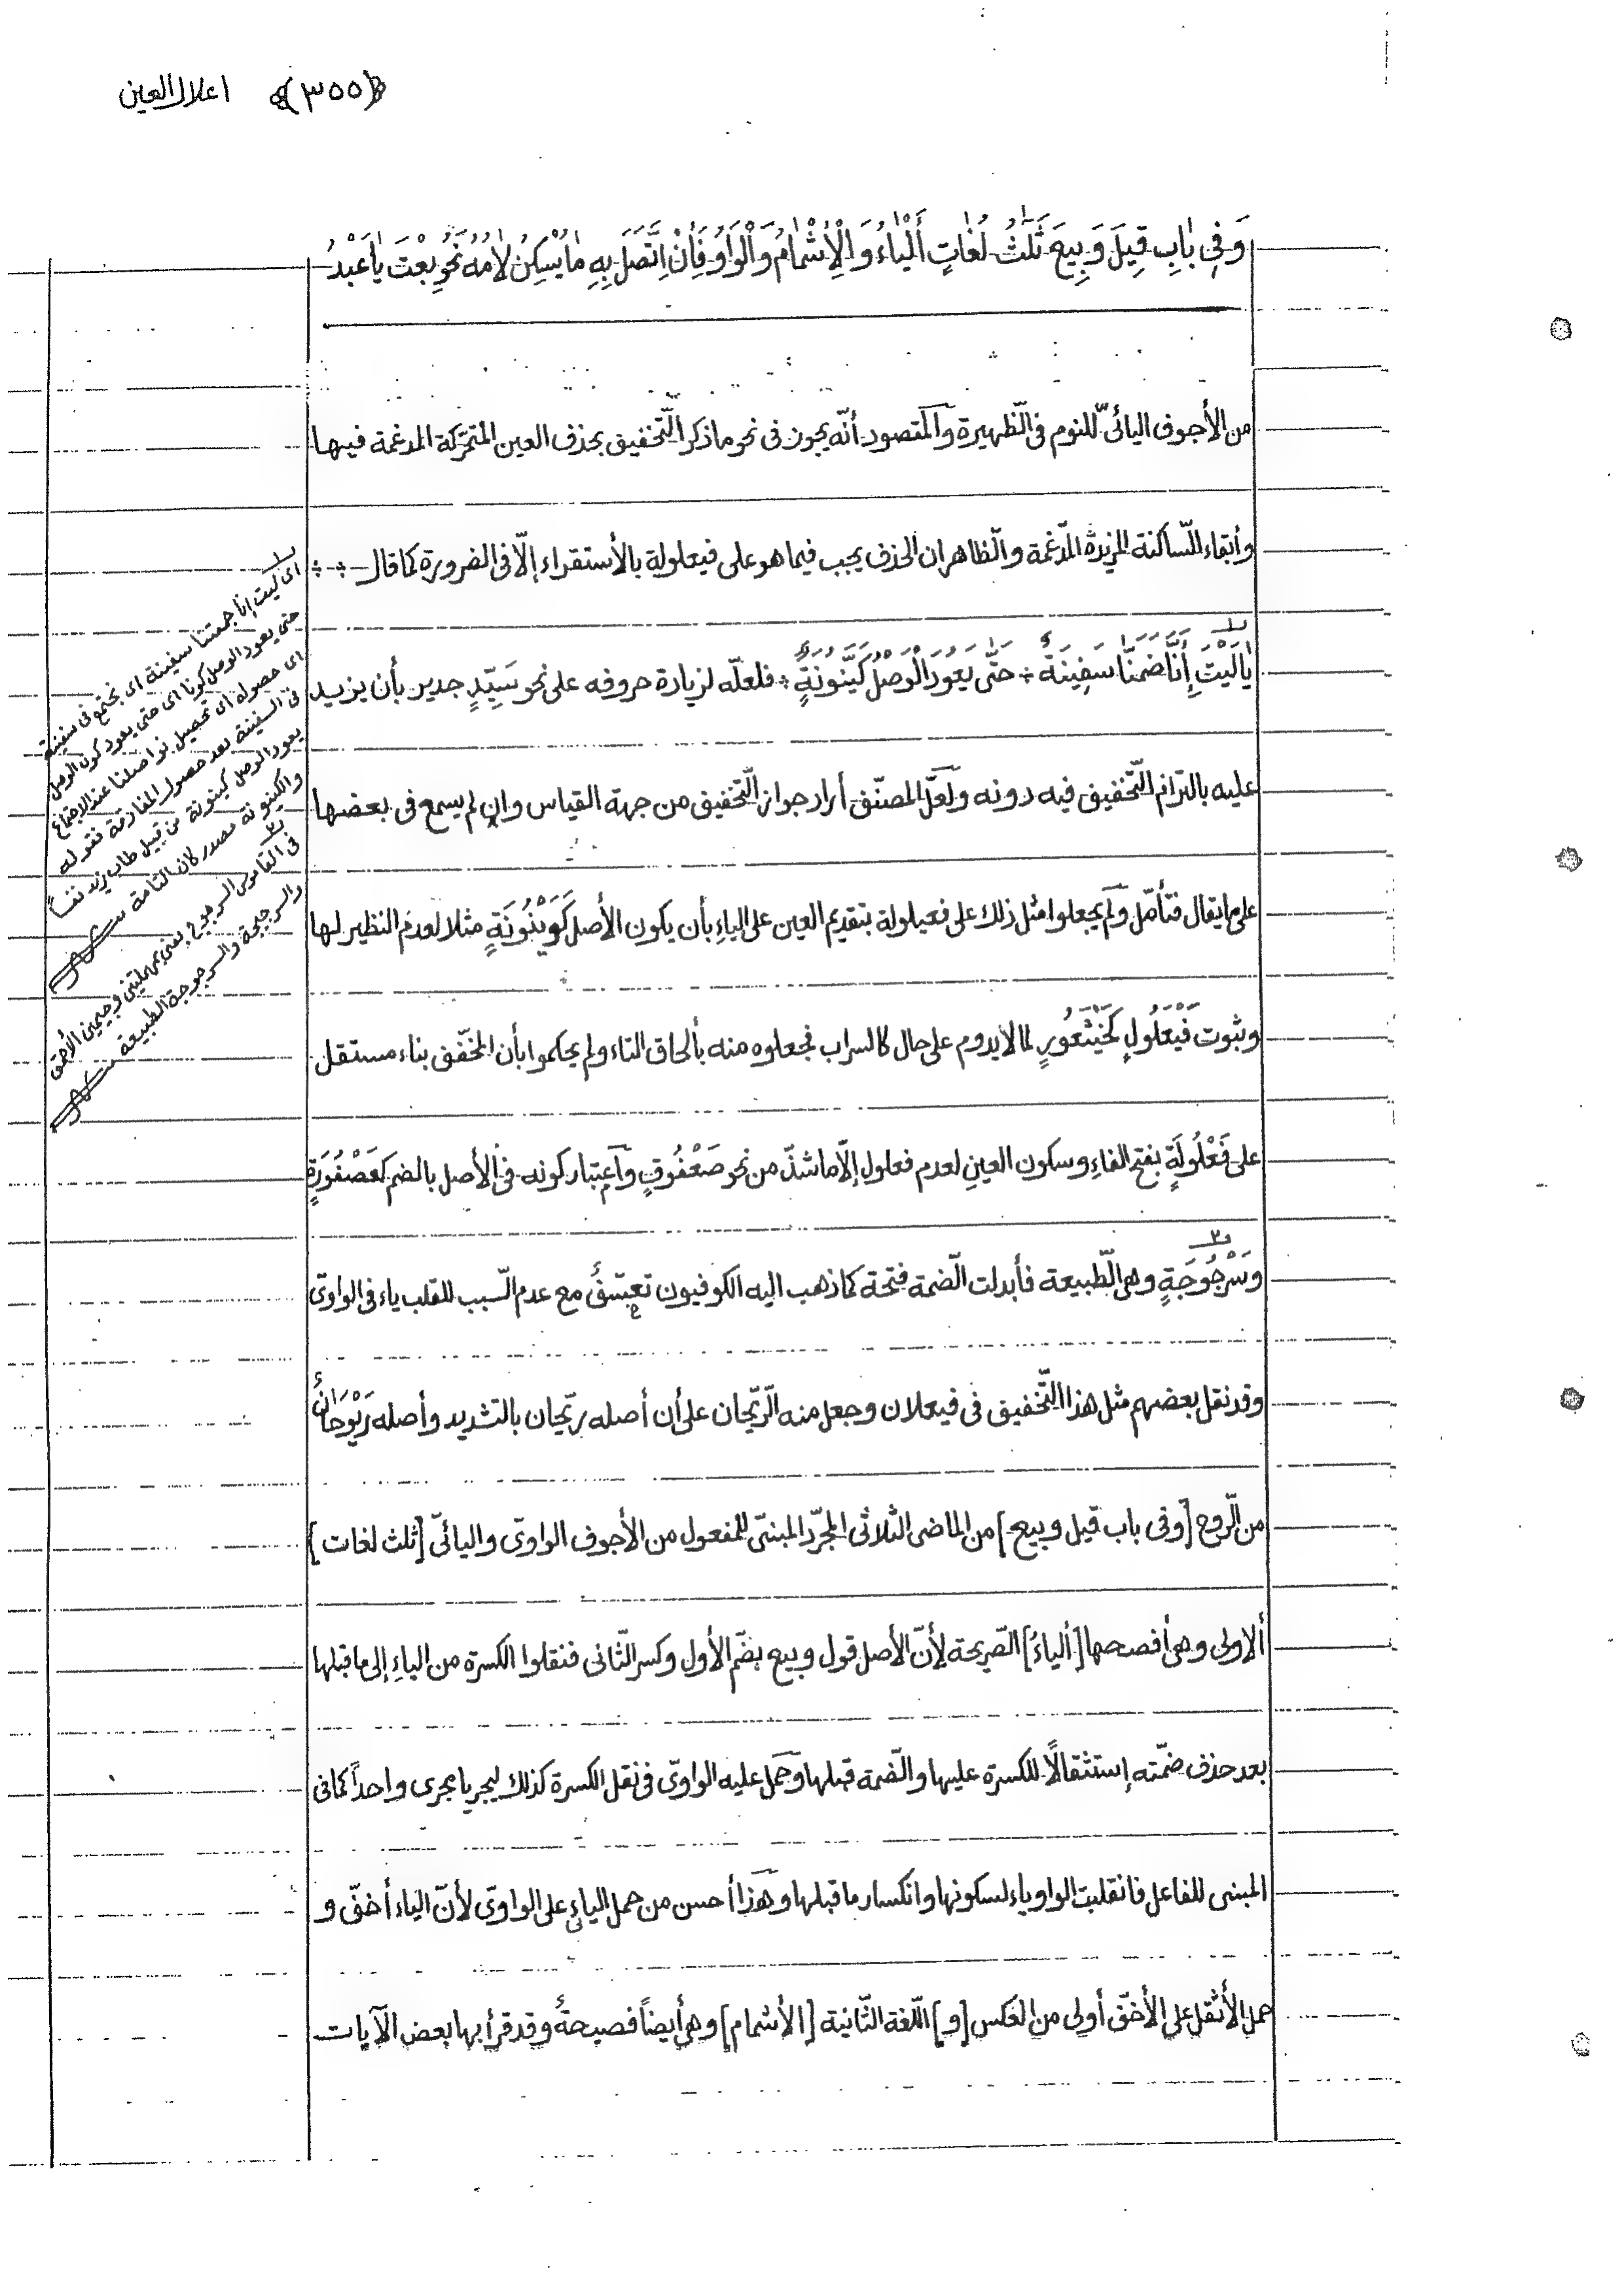 ﴿٣٥٥﴾ اعلال العين
وَفِي بٰابِ قِيلَ وَبِيعَ ثَلٰثُ لُغٰاتٍ أَلْيٰاءُ وَالْاِشْمٰامُ وَالْوٰاوُ فَأِنْ اِتَّصَلَ بِهِ مٰا يُسْكِنُ لاٰمُهُ نَحْوُ بِعْتَ يٰا عَبْدُ
من الأجوف اليائىّ للنوم فى الظّهيرة والمقصود أنّه يجوز فى نحو ما ذكر التّخفيف بحذف العين المتحرّكة المدغمة فيها
وأبقاء السّاكنة المزيدة المدّغمة والظّاهر ان الحذف يجب فيما هو على فيعلولة بالأستقراء إلّا فى الضرورة كما قال
يٰا لَيْتَ إِنَّا ضَمَّنٰا سَفِينَةٌ ÷ حَتّٰى يَعُودَ الْوَصْلُ كَيَّنُونَةٍ ÷ فلعلّه لزيادة حروفه على نحو سَيِّدٍ جدير بأن يزيد
عليه بالتزام التّخفيف فيه دونه ولَعلّ المصنّف أراد جواز التّخفيف من جهة القياس وان لم يسمع فى بعضها
على ما يقال فتأمّل ولم يجعلوا مثل ذلك على فعيلولة بتقديم العين على الياءِ بأن يكون الأصل كَوَيْنُونَةٍ مثلا لعدم النظير لها
وثبوت فَيْعَلُولٍ كَخَيْثَعُورٍ لما لا يدوم على حال كالسراب فجعلوه منه بألحاق التاء ولم يحكموا بأن المخفّف بناء مستقل
على فَعْلُولَةٍ بفتح الفاءِ وسكون العينِ لعدم فعلول إلّا ما شذّ من نحو صَعْفُوقٍ وٱعتبار كونه فى الأصل بالضم كعَصْفُورَةٍ
وسَرْجُوجَةٍ وهى الطّبيعة فأبدلت الضّمة فتحة كما ذهب اليه الكوفيون تعسّفٌ مع عدم السّبب للقلب ياء فى الواوىّ
وقد نقل بعضهم مثل هذا التّخفيف فى فيعلان وجعل منه الرّيحان على أن أصله ريّحان بالتشديد وأصله رَيْوَحَانٌ
من الرّوح [وفى باب قيل وبيع] من الماضى الثلاثى المجرّد المبنىّ للمفعول من الأجوف الواوىّ واليائىّ [ثلث لغات]
ألاولى وهى أفصحها [ألياءُ] الصّريحة لأنّ الأصل قول وبيع بضّم الأول وكسر الثّانى فنقلوا الكسرة من الياءِ إلى ما قبلها
بعد حذف ضمّته إستثقالًا للكسرة عليها والضّمة قبلها وحمل عليه الواوىّ فى نقل الكسرة كذلك ليجريا مجرى واحداً كما فى
المبنى للفاعل فانقلبت الواو ياء لسكونها وانكسار ما قبلها وهذا أحسن من حمل اليائى على الواوىّ لأنّ الياء أخفّ و
حمل الأثقل على الأخفّ أولى من العكس [و] اللّغة الثّانية [الأشمام] وهى أيضاً فصيحةٌ وقد قرأ بها بعض الآيات
اى ليت إنا جمعتنا سفينة اى نجتمع فى سفينة
حتى يعود الوصل كونا اى حتى يعود كون الوصل
اى حصوله اى تحصيل تواصلنا عند الاجتماع
فى السفينة بعد حصول المفارقة فقوله
يعود الوصل كينونة من قبيل طاب زيد نفساً
والكينونة مصدر كان التامة
فى القاموس السرجوج بعنى بمهملتين وجيمين الأحمق
والسرجيجة والسرجوجة الطبيعة